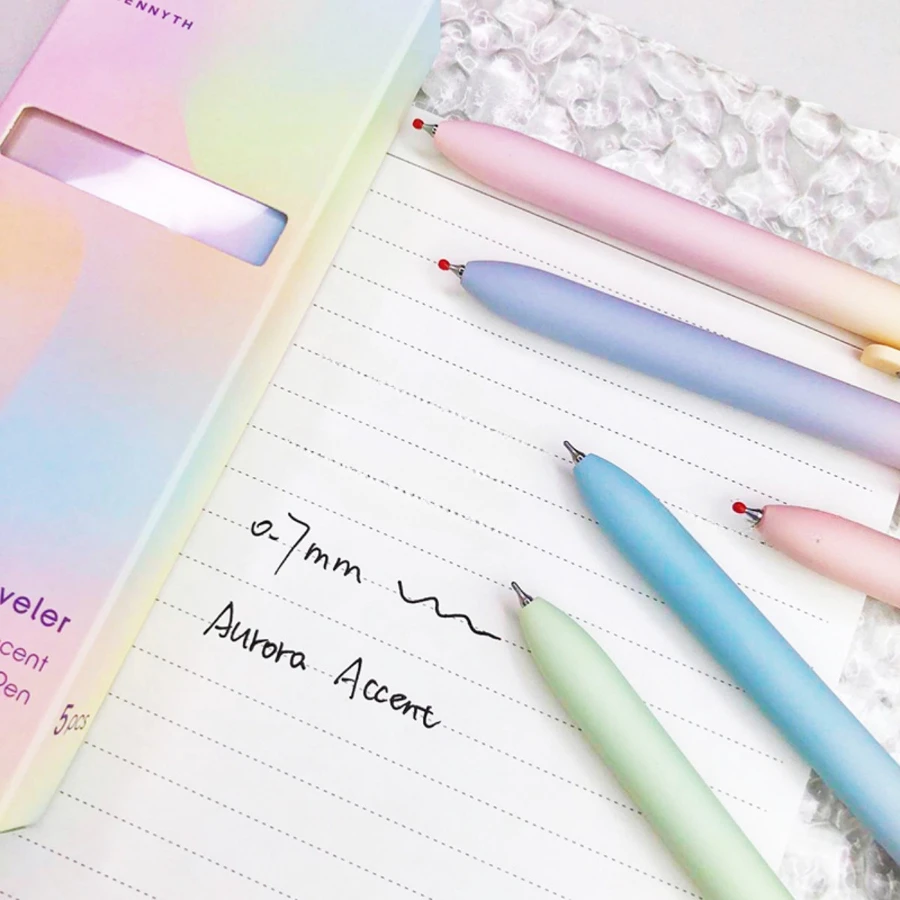 ENNYTH
veler
ccent
Pen
5pcs
0.7mm
Aurora Accent